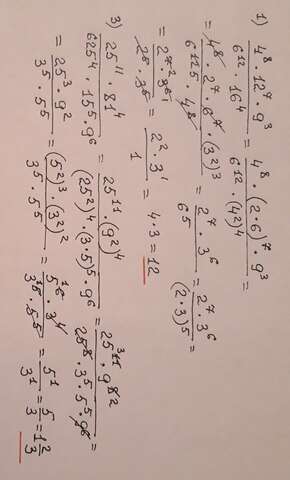 1) 4⁸·12⁷·9³ / 6¹²·16⁴ = 4⁸·(2·6)⁷·9³ / 6¹²·(4²)⁴ =
= 4⁸·2⁷·6⁷·(3²)³ / 6¹²⁵·4⁸ = 2⁷·3⁶ / 6⁵ = 2⁷·3⁶ / (2·3)⁵ =
= 2⁷²·3⁶¹ / 2⁵·3⁵ = 2²·3¹ / 1 = 4·3 = 12
3) 25¹¹·81⁴ / 625⁴·15⁵·9⁶ = 25¹¹·(9²)⁴ / (25²)⁴·(3·5)⁵·9⁶ = 25¹¹³·9⁸² / 25⁸·3⁵·5⁵·9⁶
= 25³·9² / 3⁵·5⁵ = (5²)³·(3²)² / 3⁵·5⁵ = 5⁶¹·3⁴ / 3⁵¹·5⁵ = 5¹ / 3¹ = 5/3 = 1 2/3